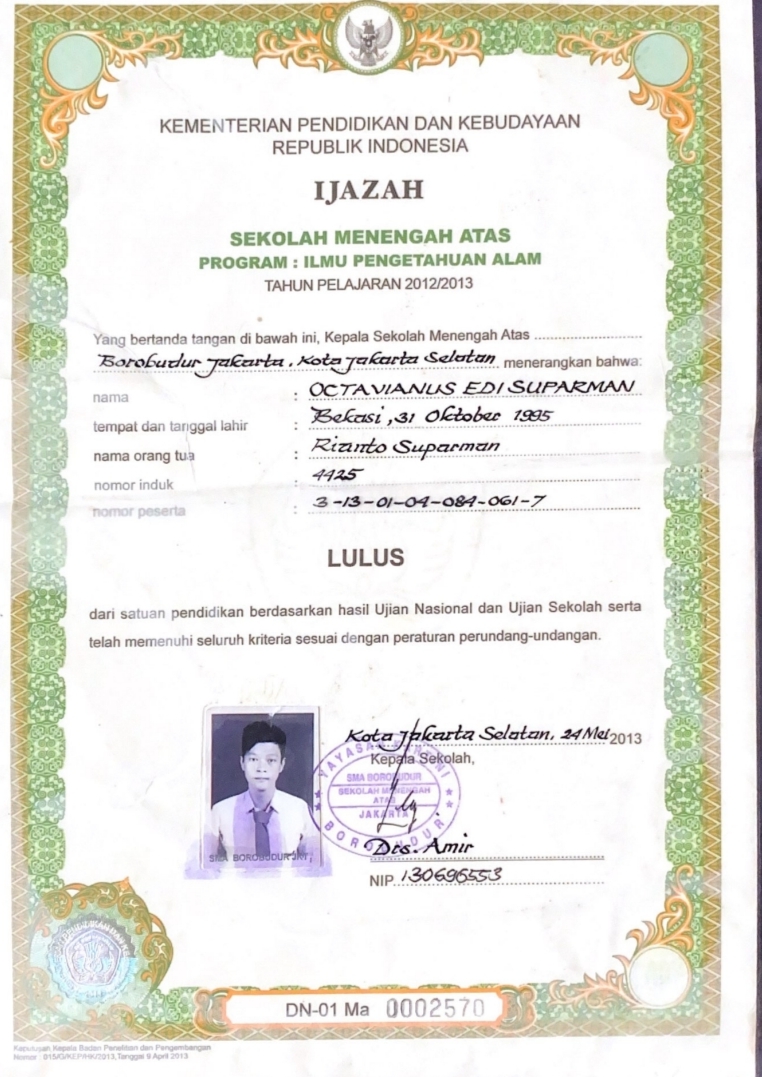 KEMENTERIAN PENDIDIKAN DAN KEBUDAYAAN
REPUBLIK INDONESIA
IJAZAH
SEKOLAH MENENGAH ATAS
PROGRAM : ILMU PENGETAHUAN ALAM
TAHUN PELAJARAN 2012/2013
Yang bertanda tangan di bawah ini, Kepala Sekolah Menengah Atas
Borobudur Jakarta, Kota Jakarta Selatan menerangkan bahwa:
nama : OCTAVIANUS EDI SUPARMAN
tempat dan tanggal lahir : Bekasi, 31 Oktober 1995
nama orang tua : Rianto Suparman
nomor induk : 4425
nomor peserta : 3-13-01-04-084-061-7
LULUS
dari satuan pendidikan berdasarkan hasil Ujian Nasional dan Ujian Sekolah serta
telah memenuhi seluruh kriteria sesuai dengan peraturan perundang-undangan.
Kota Jakarta Selatan, 24 Mei 2013
Kepala Sekolah,
YAYASAN
SMA BOROBUDUR
SEKOLAH MENENGAH
ATAS
JAKARTA
BOROBUDUR
SMA BOROBUDUR JKT
Drs. Amir
NIP 130696553
DN-01 Ma 0002570
Keputusan Kepala Badan Penelitian dan Pengembangan
Nomor : 015/G/KEP/HK/2013, Tanggal 9 April 2013